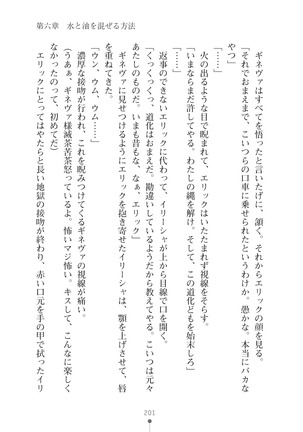 第六章　水と油を混ぜる方法
ギネヴァはすべてを悟ったと言いたげに、頷く。それからエリックの顔を見る。
「それでおまえまで、こいつらの口車に乗せられたというわけか。愚かな。本当にバカな
やつ」
火の出るような目で睨まれて、エリックはいたたまれず視線をそらす。
「いまならまだ許してやる。わたしの縄を解け。そして、この道化どもを始末しろ」
返事のできないエリックに代わって、イリーシャが上から目線で口を開く。
「くっくっくっ、道化はおまえだ。勘違いしているようだから教えてやる。こいつは元々
あたしのものだ。いまも昔もな。なぁ、エリック」
ギネヴァに見せつけるようにエリックを抱き寄せたイリーシャは、顎を上げさせて、唇
を重ねてきた。
「ウン、ウム、ウム……」
濃厚な接吻が行われ、これを睨みつけてくるギネヴァの視線が痛い。
（うあぁ、ギネヴァ様滅茶苦茶怒っているよ。怖いマジ怖い。キスして、こんなに楽しく
なかったのって、初めてだ）
エリックにとってはやたらと長い地獄の接吻が終わり、赤い口元を手の甲で拭ったイリ
201